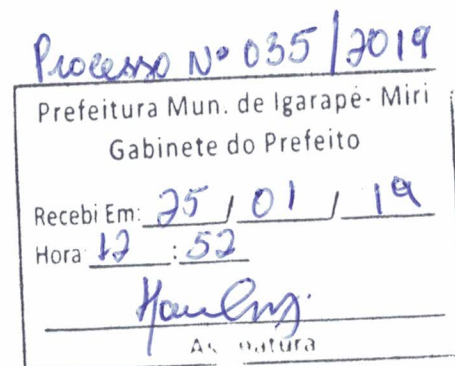 Processo Nº 035/2019
Prefeitura Mun. de Igarapé- Miri
Gabinete do Prefeito
Recebi Em: 25 / 01 / 19
Hora 12 : 52
Assinatura